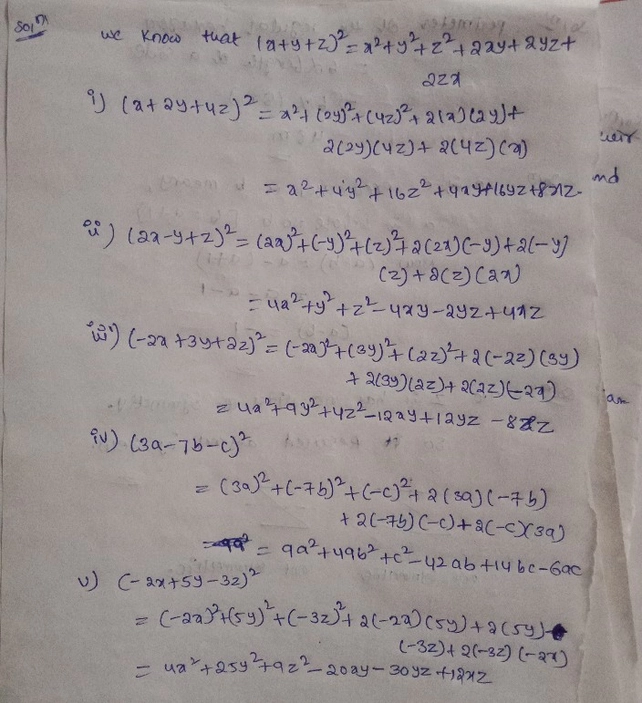 Solⁿ we know that (x+y+z)²=x²+y²+z²+2xy+2yz+
2zx
i) (x+2y+4z)²=x²+(2y)²+(4z)²+2(x)(2y)+
2(2y)(4z)+2(4z)(x)
=x²+4y²+16z²+4xy+16yz+8xz.
ii) (2x-y+z)²=(2x)²+(-y)²+(z)²+2(2x)(-y)+2(-y)
(z)+2(z)(2x)
=4x²+y²+z²-4xy-2yz+4xz
iii) (-2x+3y+2z)²=(-2x)²+(3y)²+(2z)²+2(-2z)(3y)
+2(3y)(2z)+2(2z)(-2x)
=4x²+9y²+4z²-12xy+12yz-8xz
iv) (3a-7b-c)²
=(3a)²+(-7b)²+(-c)²+2(3a)(-7b)
+2(-7b)(-c)+2(-c)(3a)
=9a²+49b²+c²-42ab+14bc-6ac
v) (-2x+5y-3z)²
=(-2x)²+(5y)²+(-3z)²+2(-2x)(5y)+2(5y)
(-3z)+2(-3z)(-2x)
=4x²+25y²+9z²-20xy-30yz+12xz
nd